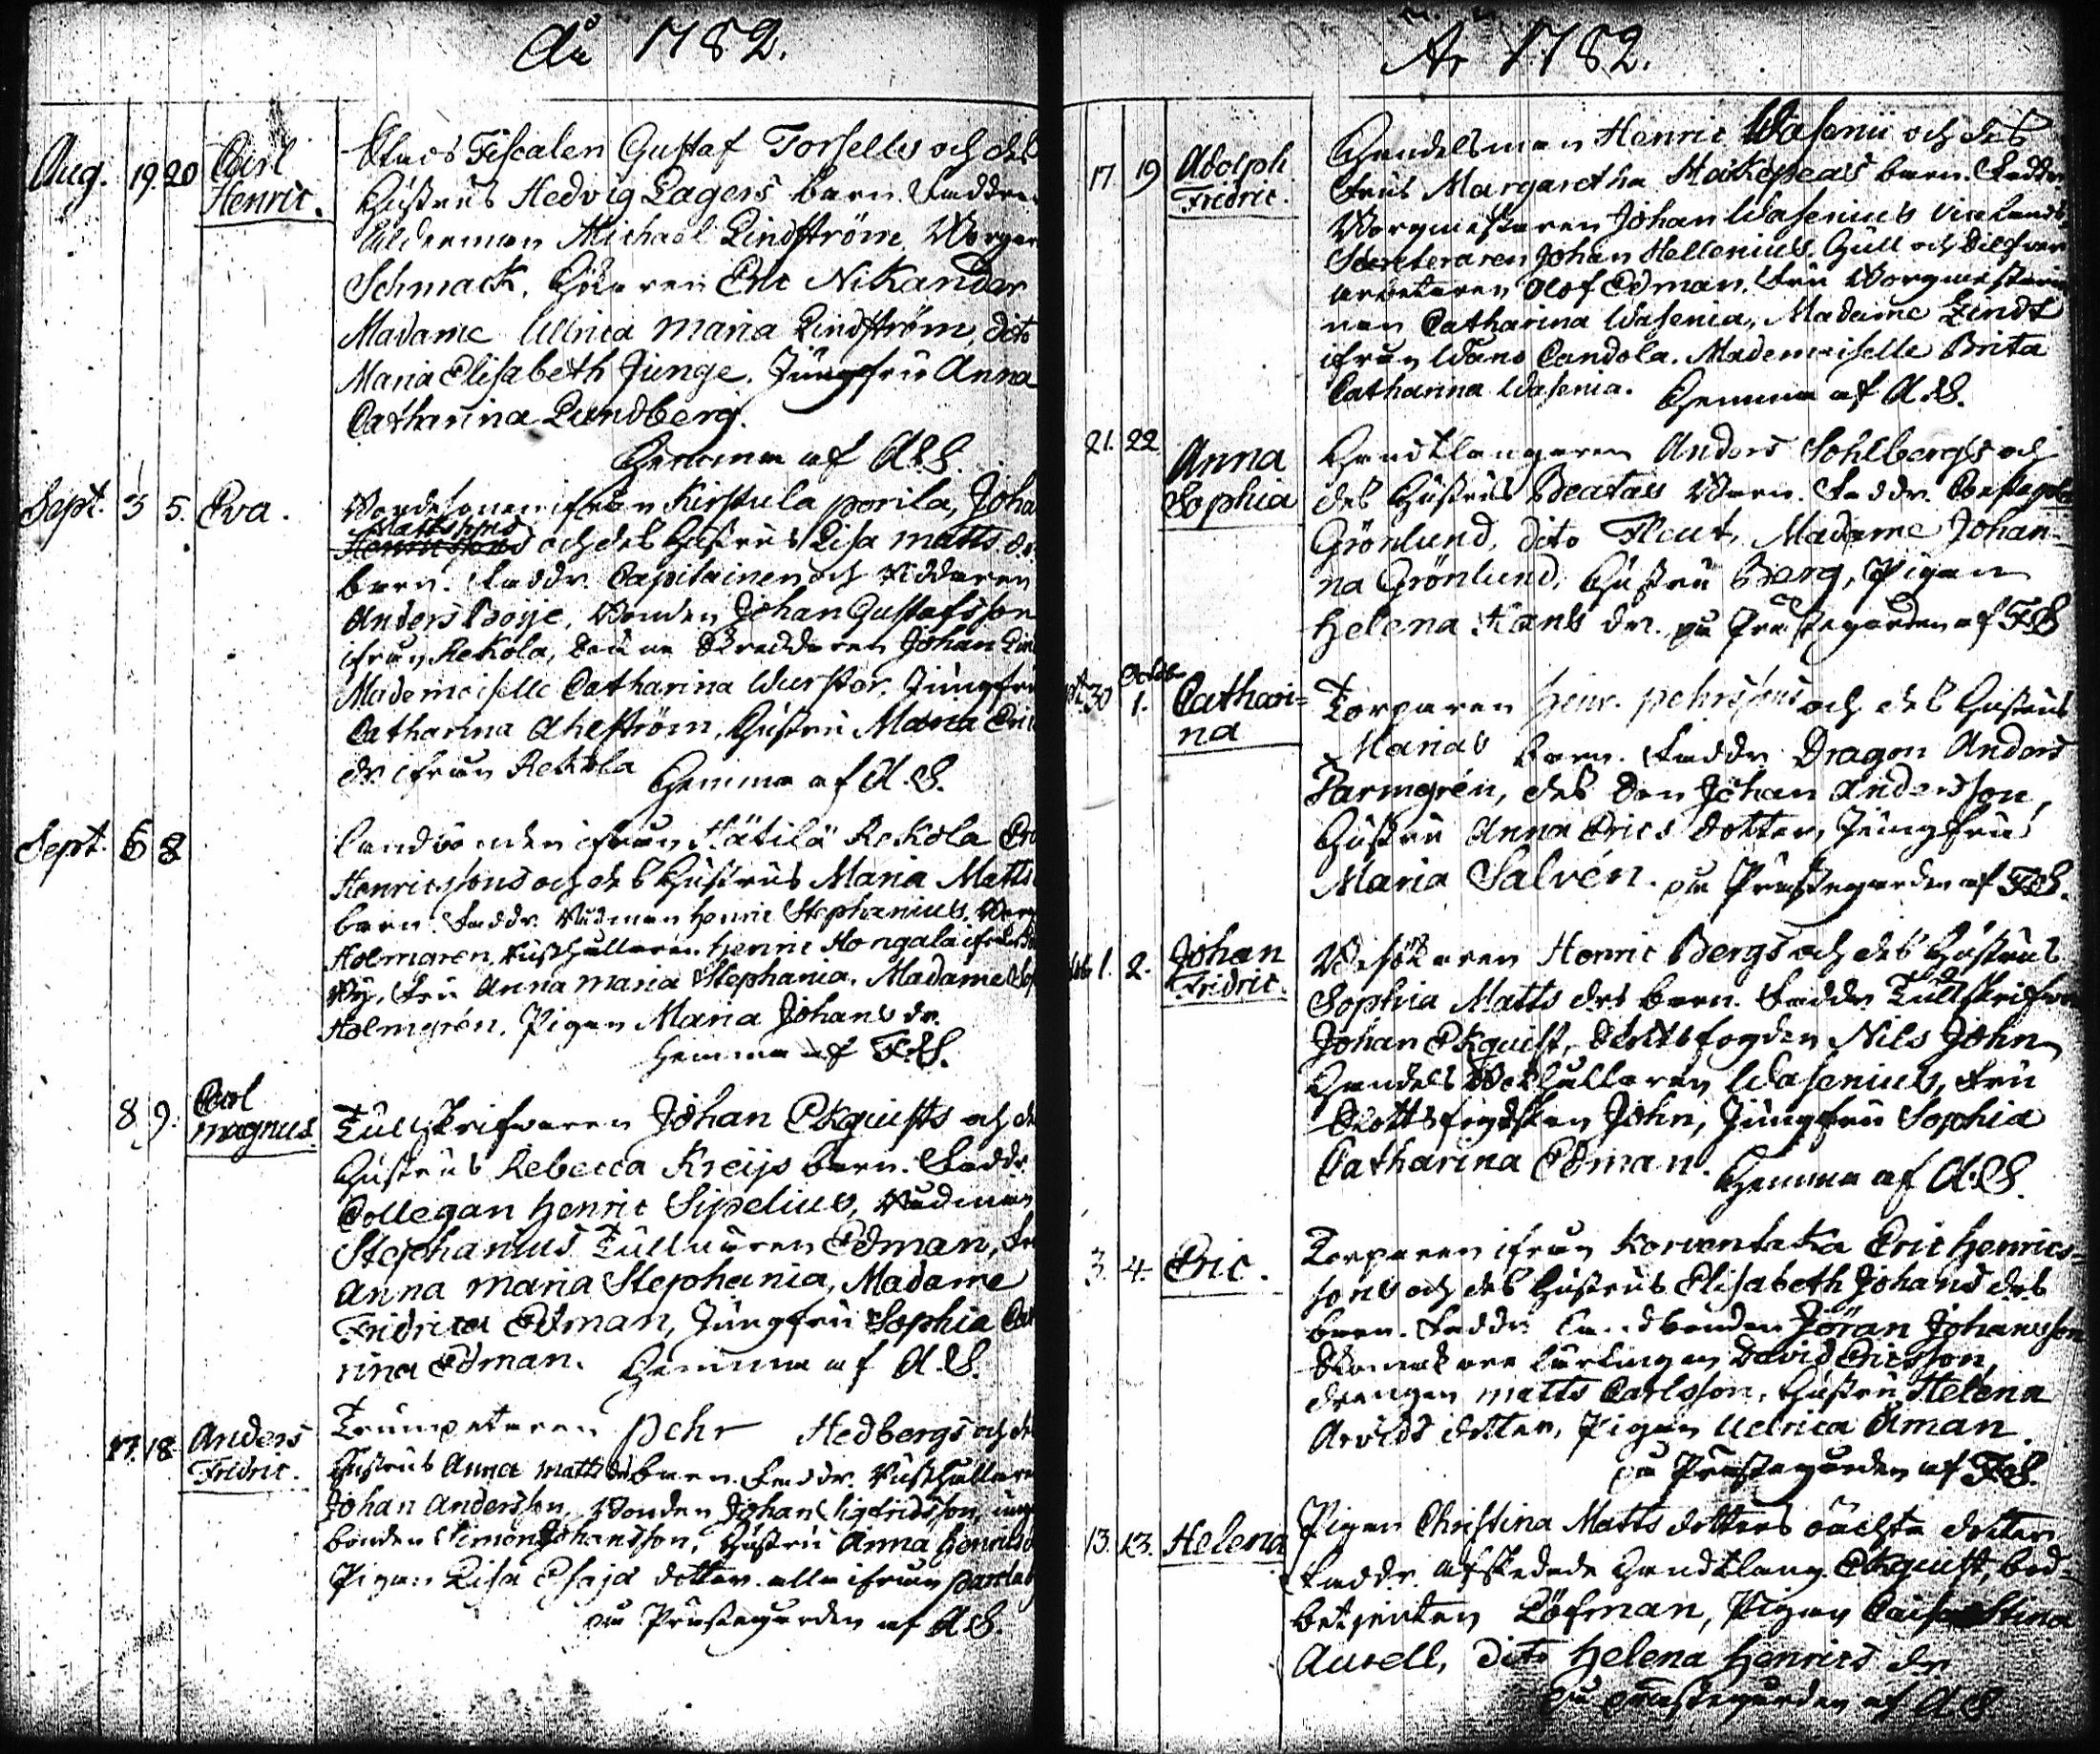 År 1782.
Aug. 19. 20 Carl Henric.
Stads Fiscalen Gustaf Torselles och des
Hustrus Hedvig Lagers barn. Faddr.
Ålderman Michael Lindström, Borgar
Schmack, Eric Nikander
Madame Ullrica Maria Lindström, dito
Maria Elisabeth Junge, Jungfru Anna
Catharina Lundberg.
Hemma af A.S.
Sept. 3 5. Eva.
Bondesonen ifrån Kirstula porila, Joha
Mattssons
och des Hustrus Lisa Matts dr
barn. Faddr. Capitainen och Riddaren
Anders Boije, Bonden Johan Gustafsson
ifrån Rekola, Skreddaren Johan
Mademoiselle Catharina Wurster, Jungfru
Catharina Ahlström, Hustru Maria Eric
dr ifrån Rekola Hemma af A.S.
Sept. 6 8
Landbonden ifrån Hätilä Rekola
Henricssons och des Hustrus Maria Matts
barn. Faddr. Rådman Henric Stephanius,
Holmgren, Rusthållaren Henric Hongala
By, Fru Anna Maria Stephania, Madame
Holmgrén, Pigan Maria Johans dr.
Hemma af F.S.
8 9. Carl Magnus
Tullskrifvaren Johan Ekquists och des
Hustrus Rebecca Kreijs barn. Faddr.
Collegan Henric Sipelius, Rådman
Stephanius Tullnären Edman, Fru
Anna Maria Stephania, Madame
Fridrica Edman, Jungfru Sophia Cat
rina Edman. Hemma af A.S.
17. 18 Anders Fridric.
Trumpetaren Pehr Hedbergs och des
Hustrus Anna Matts drs barn. Faddr. Rusthållaren
Johan Andersson, Bonden Johan Sigfridsson,
bonden Simon Johansson, Hustru Anna Henrics
Pigan Lisa Esajæ dotter alla ifrån
på Prästegården af A.S.
Ar 1782.
17 19 Adolph Fridric.
Handelsman Henric Wasenii och des
Frus Margaretha barn. Faddr
Borgmästaren Johan Wasenius Vice Lands
Secreteraren Johan Hellenius, Gull och Silfver
arbetaren Olof Edman, Fru Borgmästarin
nan Catharina Wasenia, Madame Lindt
ifrån Wånå Candola, Mademoiselle Brita
Catharina Wasenia. Hemma af A.S.
21. 22 Anna Sophia
Handtlangaren Anders Sohlbergs och
des Hustrus Beatas Barn. Faddr.
Grönlund, dito Fleut, Madame Johan=
na Grönlund, Hustru Berg, Pigan
Helena Hans dr. på Prästegården af F.S
30 Octobr 1. Cathari=
na
Torparen Henr. Pehrssons och des Hustrus
Marias barn. Faddr Dragon Anders
Parmgrén, des Son Johan Andersson,
Hustru Anna Erics dotter, Jungfru
Maria Salvén. på Prästegården af F.S.
1. 2. Johan Fridric.
Besökaren Henric Bergs och des Hustrus
Sophia Matts drs barn. Faddr Tullskrifvaren
Johan Ekquist, Slottsfogden Nils John
Handels Bokhållaren Wasenius, Fru
Slottsfogdskan John, Jungfru Sophia
Catharina Edman. Hemma af A.S.
3. 4. Eric.
Torparen ifrån Korventaka Eric Henrics=
sons och des Hustrus Elisabeth Johans drs
barn. Faddr Landbonden Jöran Johansson
Skomakare Lärlingen David Ericsson,
drengen Matts Carlsson, Hustru Helena
Arvids dotter, Pigan Ullrica Åman
på Prästegården af F.S.
13. 13. Helena
Pigan Christina Matts dotters oächta dotter
Faddr. Afskedade Handtlang Ekquist, bod=
betjenten Löfman, Pigan Caisa Stina
Aurell, Dito Helena Henrics dr
på Prästegården af A.S